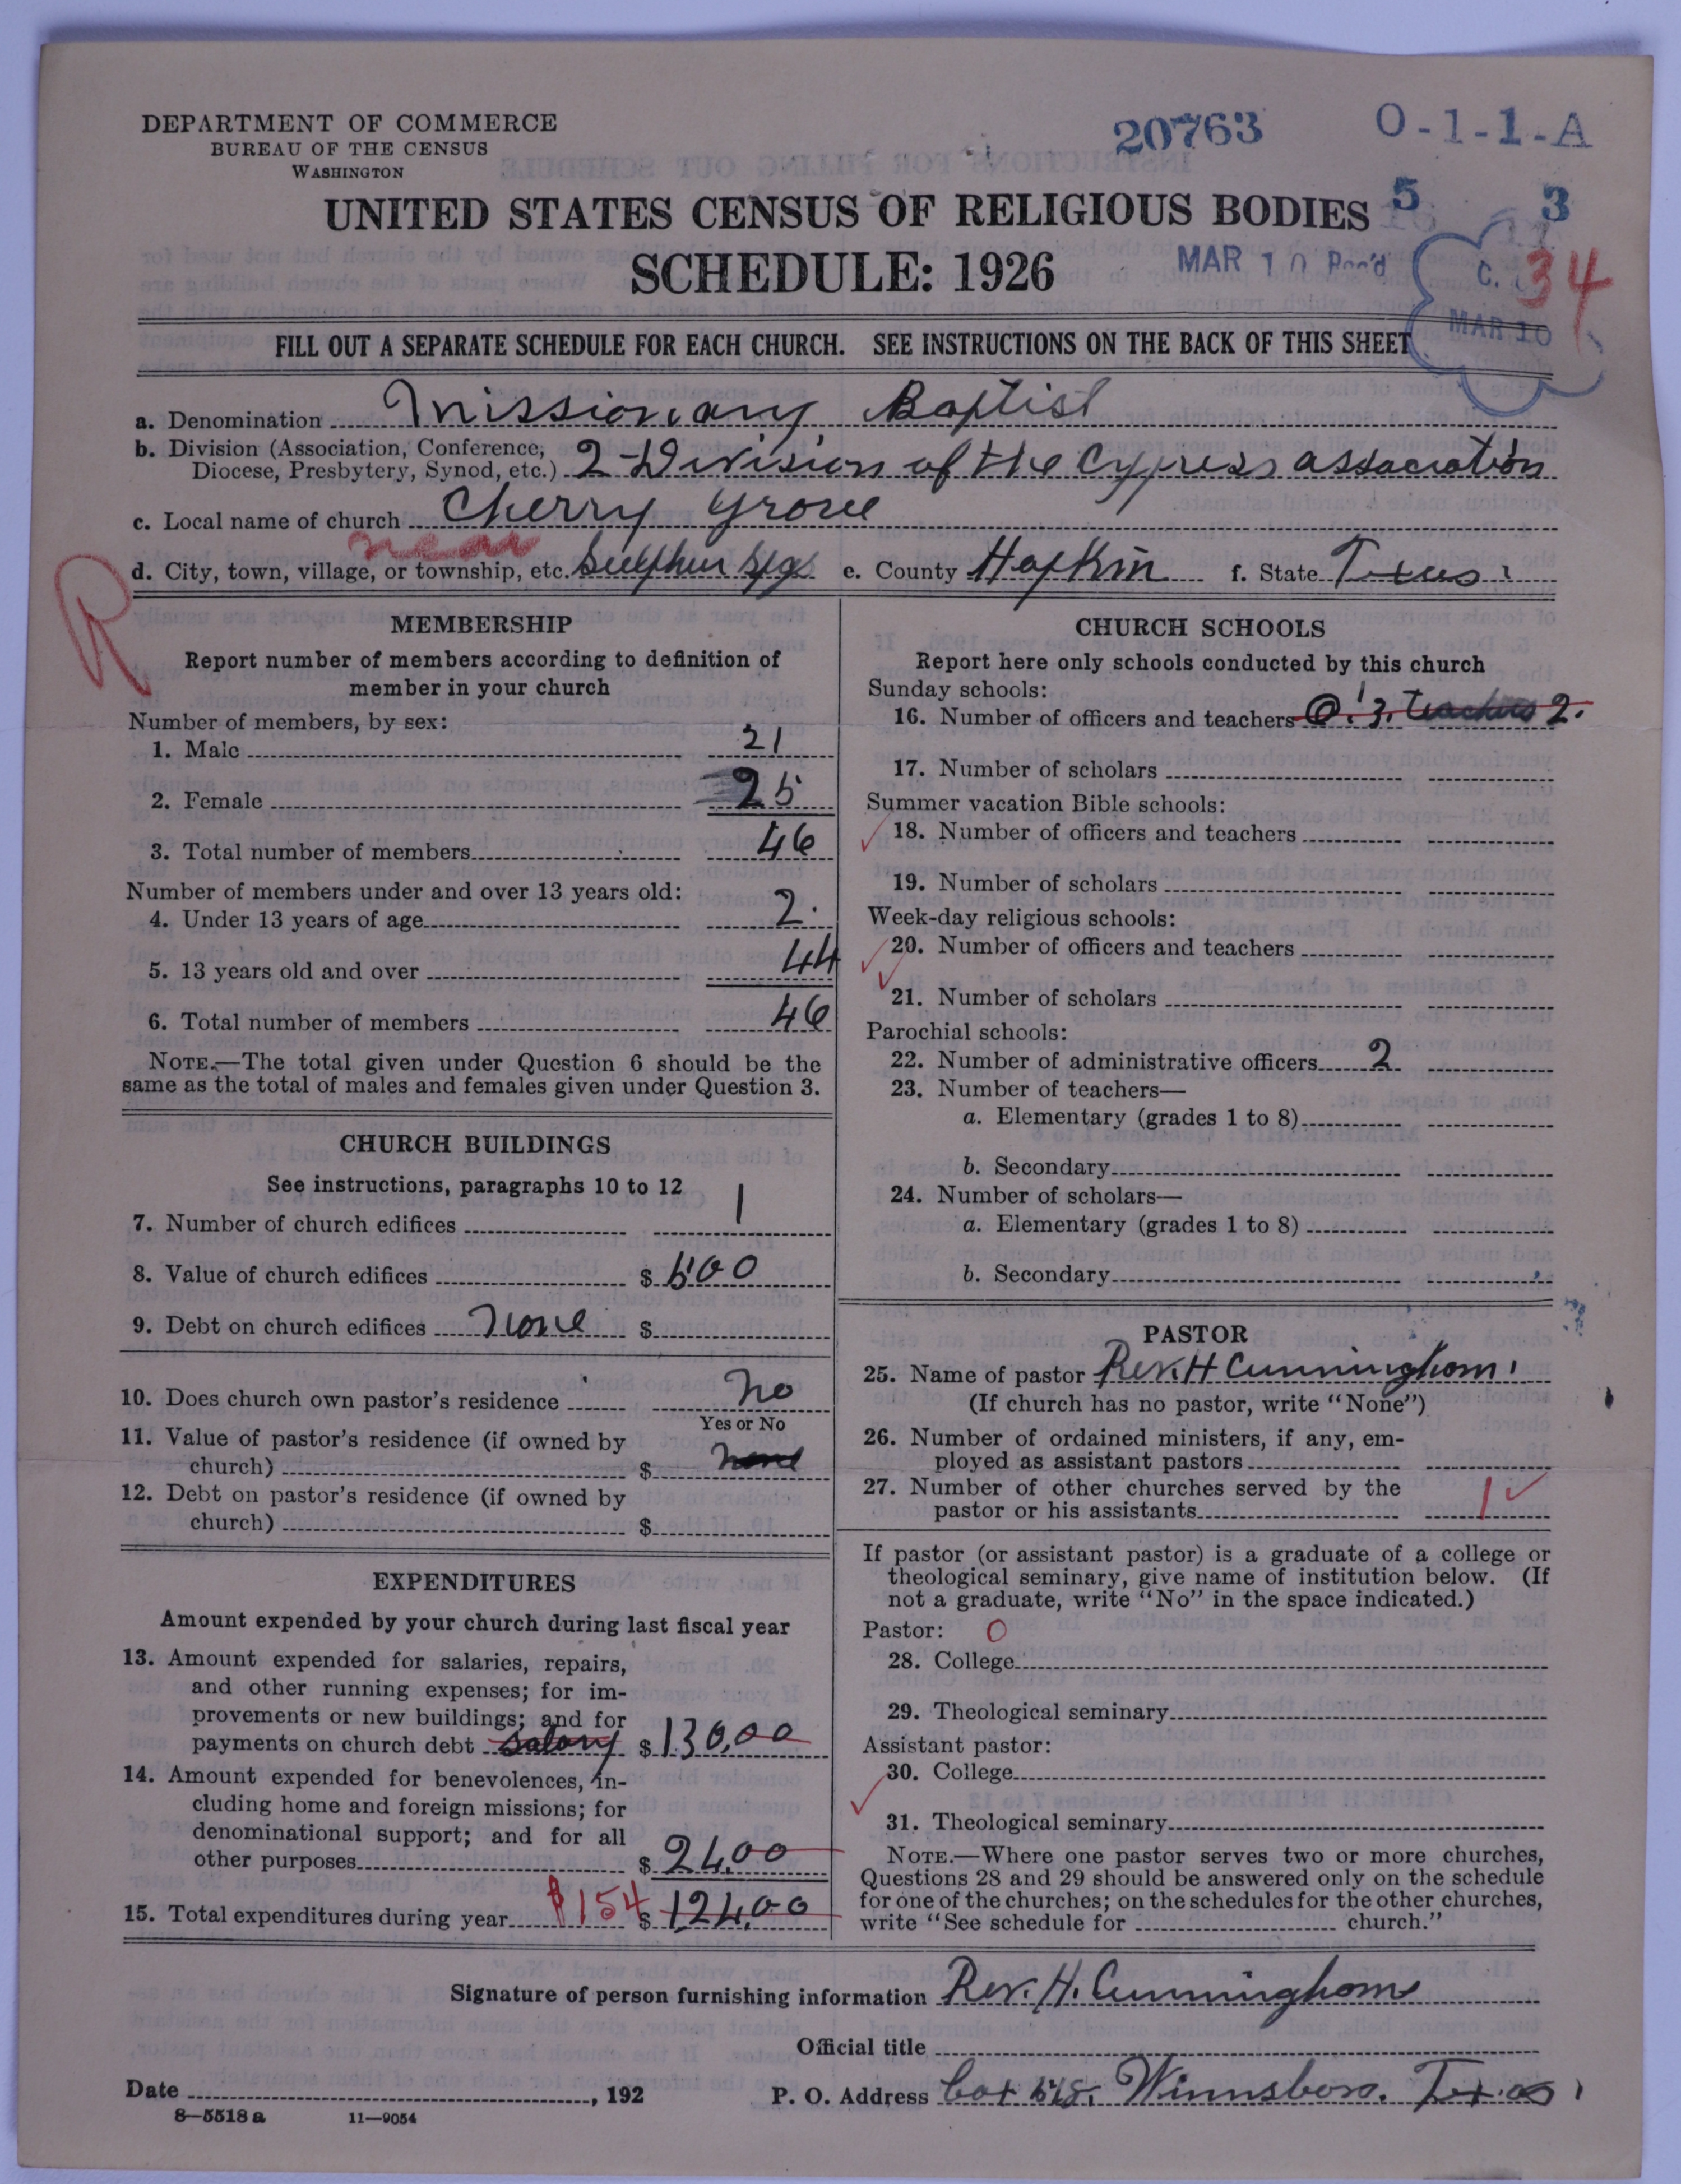 DEPARTMENT OF COMMERCE
BUREAU OF THE CENSUS
WASHINGTON
20763 O-1-1-A
UNITED STATES CENSUS OF RELIGIOUS BODIES 5 3
SCHEDULE: 1926 MAR 10 Rec'd C. 34
MAR 10
FILL OUT A SEPARATE SCHEDULE FOR EACH CHURCH. SEE INSTRUCTIONS ON THE BACK OF THIS SHEET
a. Denomination Missionary Baptist
b. Division (Association, Conference,
Diocese, Presbytery, Synod, etc.) 2-Division of the Cypress association
c. Local name of church Cherry Grove
near
d. City, town, village, or township, etc. Sulphur Spgs e. County Hopkin f. State Texas
R
MEMBERSHIP
Report number of members according to definition of
member in your church
Number of members, by sex:
1. Male 21
2. Female 25
3. Total number of members 46
Number of members under and over 13 years old:
4. Under 13 years of age 2.
5. 13 years old and over 44
6. Total number of members 46
NOTE.—The total given under Question 6 should be the
same as the total of males and females given under Question 3.
CHURCH BUILDINGS
See instructions, paragraphs 10 to 12
7. Number of church edifices 1
8. Value of church edifices $ 500
9. Debt on church edifices None $
10. Does church own pastor's residence No
Yes or No
11. Value of pastor's residence (if owned by
church) $ none
12. Debt on pastor's residence (if owned by
church) $
EXPENDITURES
Amount expended by your church during last fiscal year
13. Amount expended for salaries, repairs,
and other running expenses; for im-
provements or new buildings; and for
payments on church debt salary $ 130,00
14. Amount expended for benevolences, in-
cluding home and foreign missions; for
denominational support; and for all
other purposes $ 24.00
15. Total expenditures during year $154 $ 124.00
CHURCH SCHOOLS
Report here only schools conducted by this church
Sunday schools:
16. Number of officers and teachers O. 3. teachers 2.
17. Number of scholars
Summer vacation Bible schools:
18. Number of officers and teachers
19. Number of scholars
Week-day religious schools:
20. Number of officers and teachers
21. Number of scholars
Parochial schools:
22. Number of administrative officers 2
23. Number of teachers—
a. Elementary (grades 1 to 8)
b. Secondary
24. Number of scholars—
a. Elementary (grades 1 to 8)
b. Secondary
PASTOR
25. Name of pastor Rev. H Cunninghom
(If church has no pastor, write "None")
26. Number of ordained ministers, if any, em-
ployed as assistant pastors
27. Number of other churches served by the
pastor or his assistants 1
If pastor (or assistant pastor) is a graduate of a college or
theological seminary, give name of institution below. (If
not a graduate, write "No" in the space indicated.)
Pastor: 0
28. College
29. Theological seminary
Assistant pastor:
30. College
31. Theological seminary
NOTE.—Where one pastor serves two or more churches,
Questions 28 and 29 should be answered only on the schedule
for one of the churches; on the schedules for the other churches,
write "See schedule for church."
Signature of person furnishing information Rev. H. Cunninghom
Official title
Date , 192 P. O. Address Winnsboro. Texas
8—5518 a 11—9054